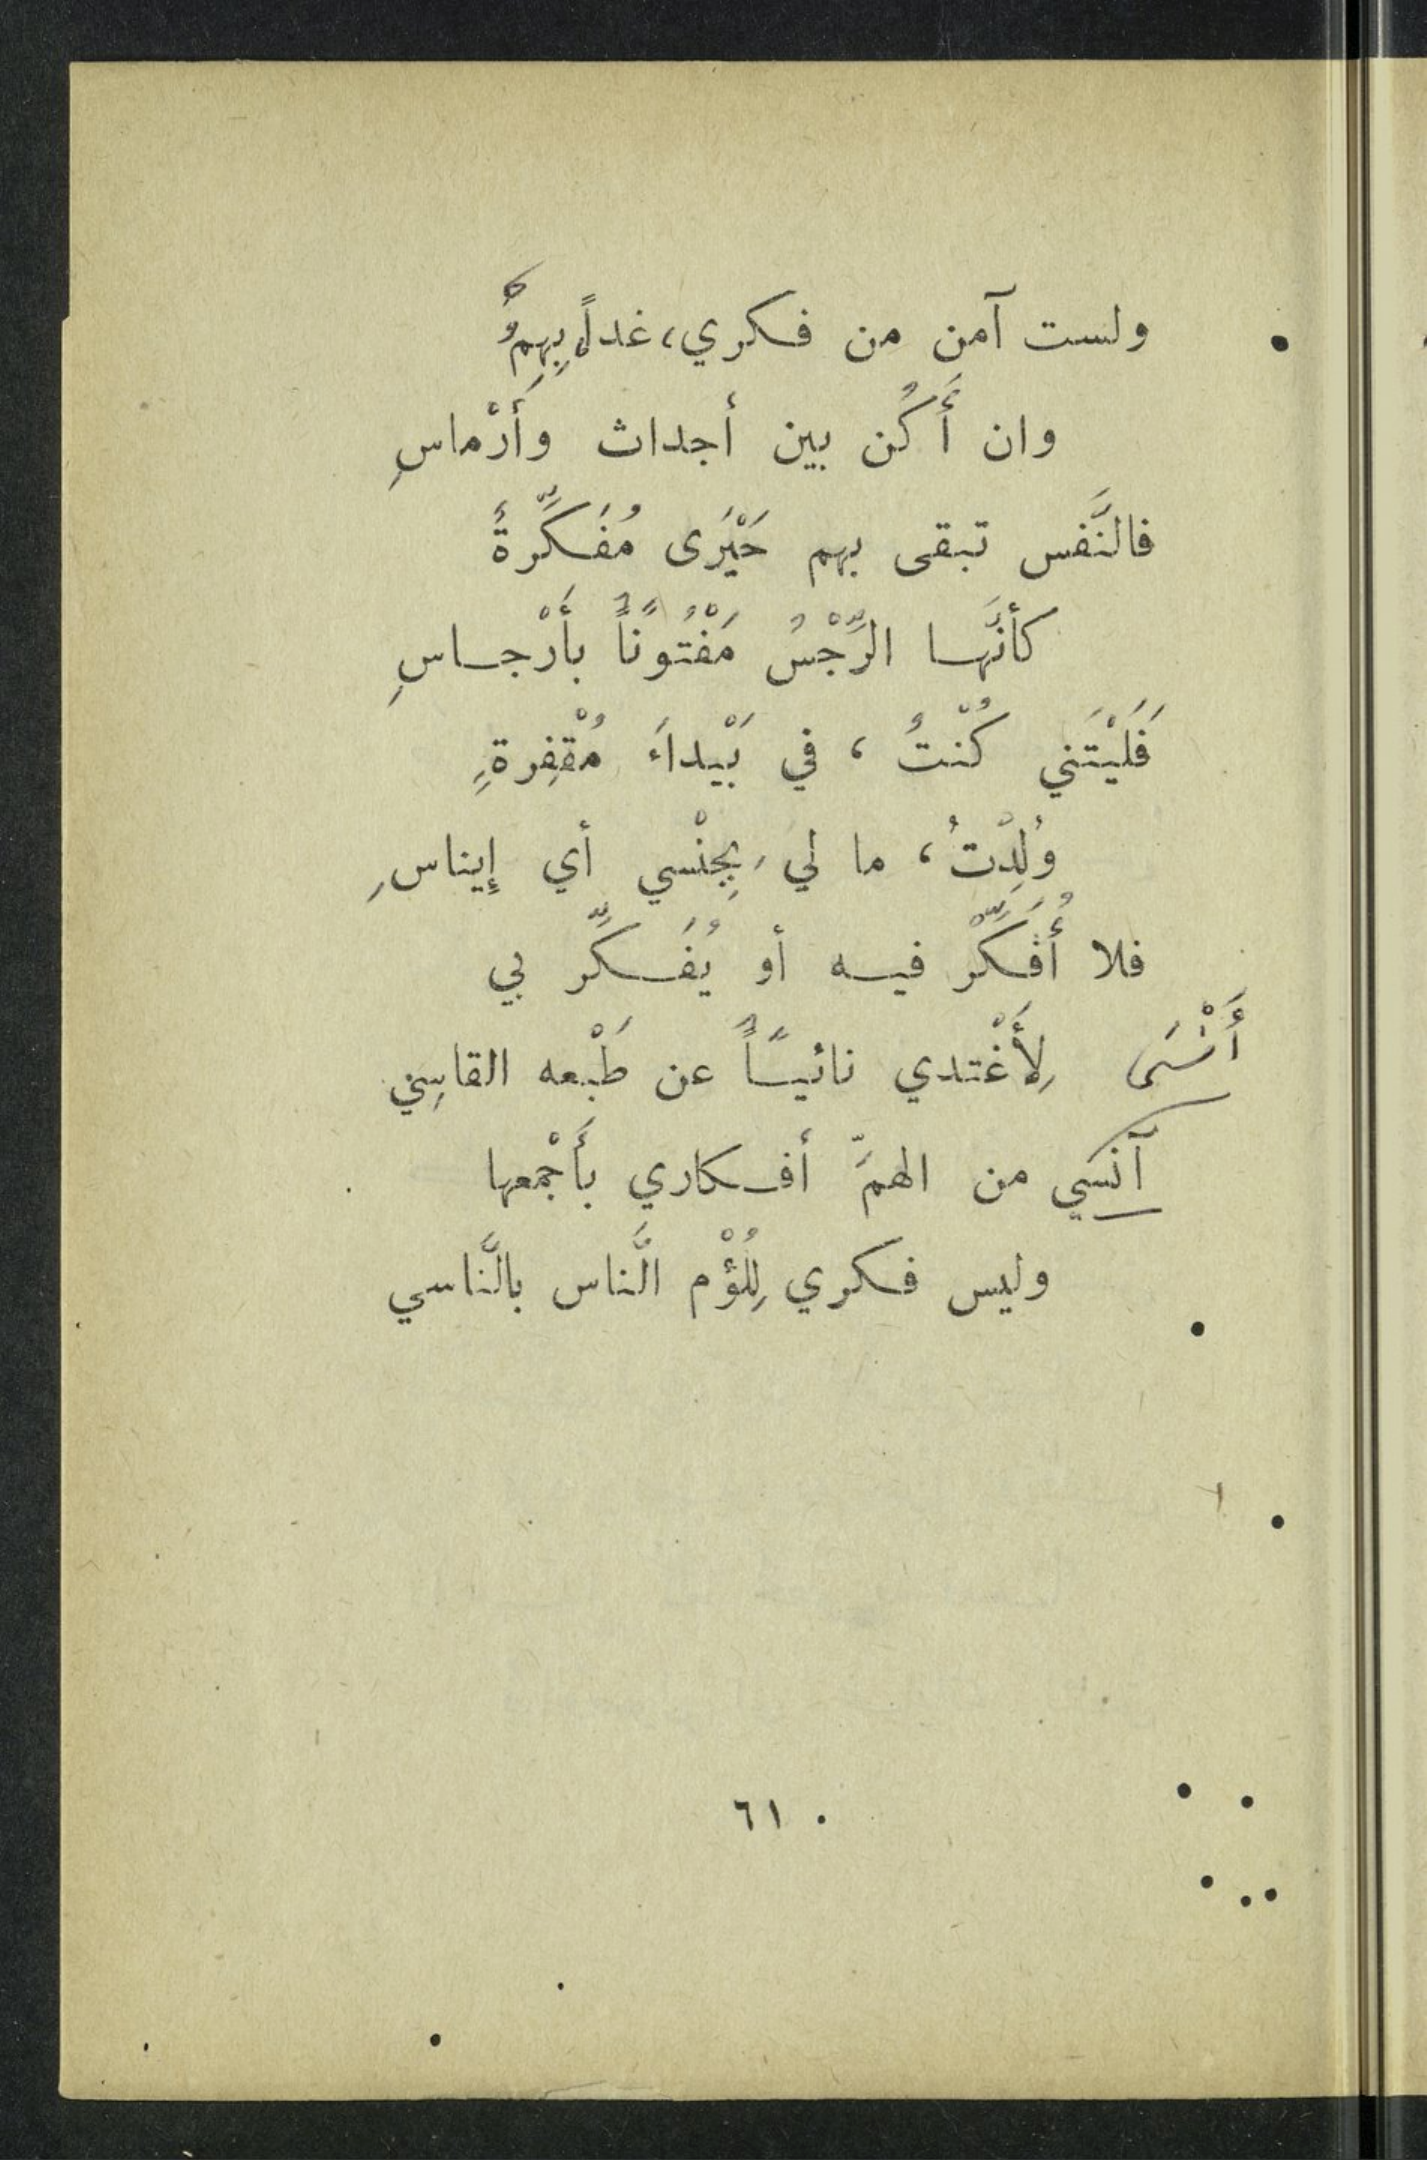 ولست آمن من فكري، غداً، بِهِمُ
وان أَكُن بين أجداث وأَرْماسِ
فالنَّفس تبقى بهم حَيْرَى مُفَكِّرةً
كأنَّها الرِّجْسُ مَفْتُوناً بأَرْجاسِ
فَلَيْتَني كُنْتُ ، في بَيْداءَ مُقْفِرةٍ
وُلِدْتُ ، ما لي بِجِنْسي أي إيناسِ
فلا أُفَكِّرْ فيه أو يُفَكِّر بي
لِأَغْتدي نائياً عن طَبْعه القاسِي
أَنْسَى
آنسَي من الهمِّ أفكاري بأَجْمعها
وليس فكري لِلُؤْم النَّاس بالنَّاسي
٦١